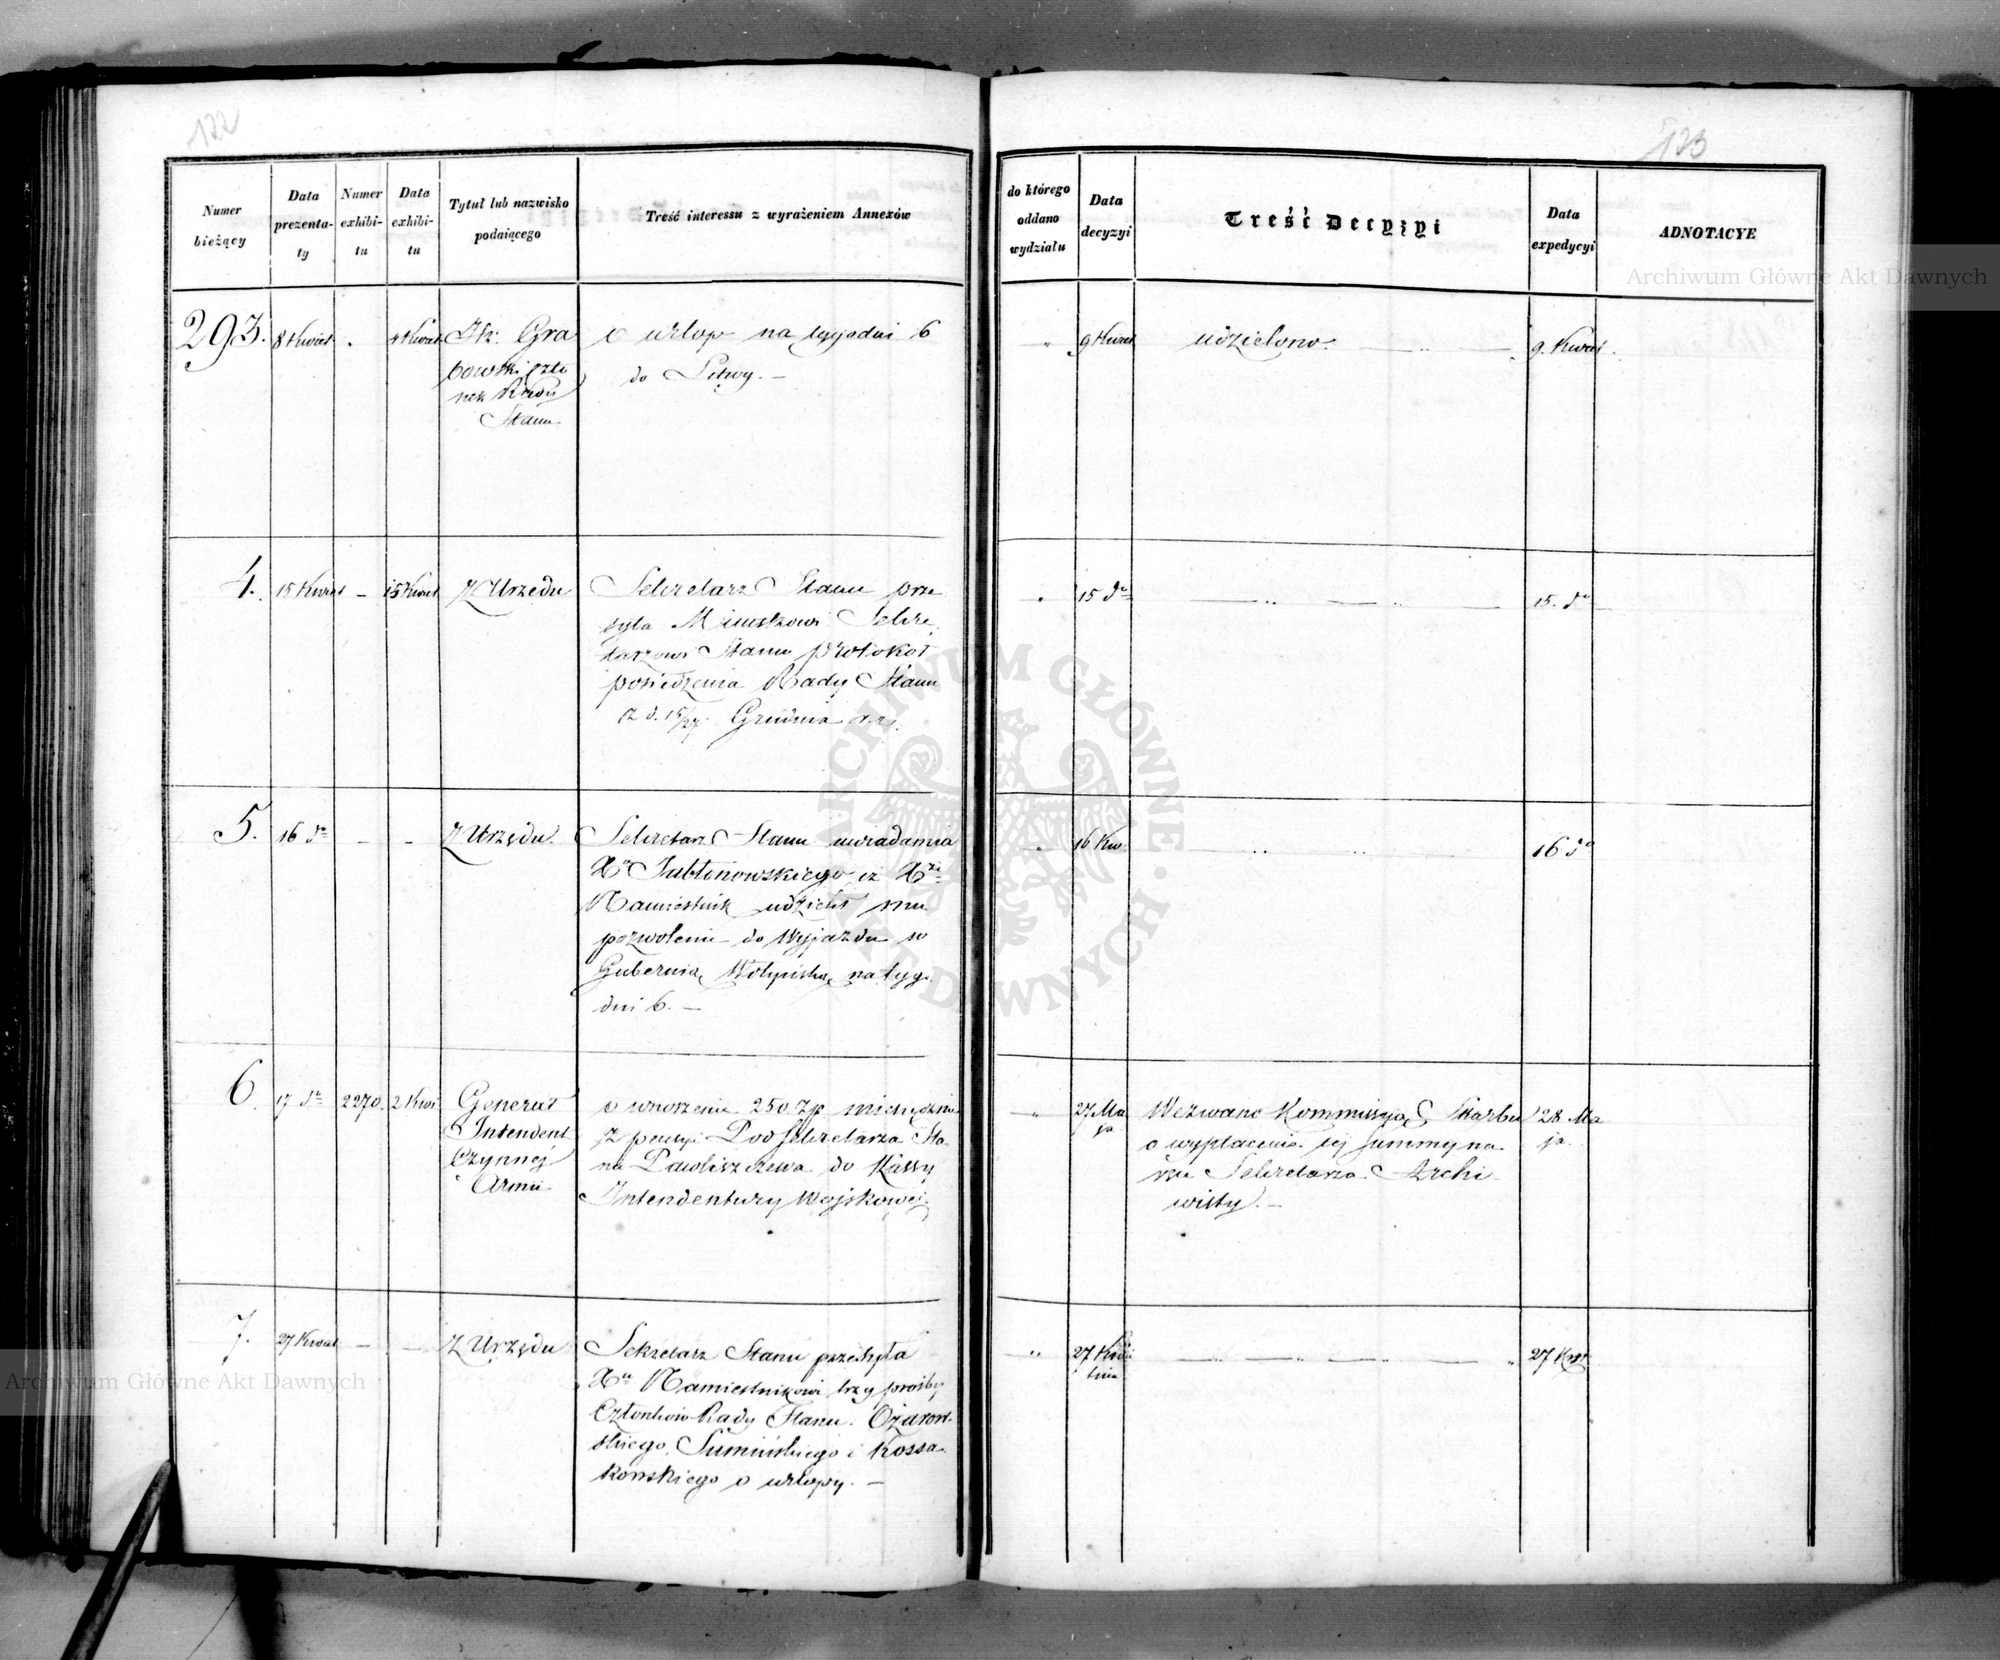 122
Numer
bieżący
Data
prezenta-
ty
Numer
exhibi-
tu
Data
exhibi-
tu
Tytuł lub nazwisko
podaiącego
Treść interessu z wyrażeniem Annexów
293. 8 Kwiet 4 Kwiet Hr: Gra
bowski czło
nek Rady
Stanu
o urlop na tygodni 6
do Litwy. —
4. 15 Kwiet — 15 Kwiet Z Urzędu
Sekretarz Stanu prze
syła Ministrowi Sekre
tarzowi Stanu protokół
posiedzenia Rady Stanu
z d. 15/27. Grudnia r. z.
5. 16 do — — Z Urzędu.
Sekretarz Stanu uwiadamia
Xa Lubłinowskiego, iż Xże
Namiestnik udzielił mu
pozwolenie do Wyjazdu w
Gubernią Wołyńską na tyg.
dni 6. —
6. 17 do 2270. 2 Kwi Generał
Intendent
Czynnej
Armii
o wnoszenie 250 Zp miesięcznie
z pensyi Pod Sekretarza Sta
nu Pawliszczewa do Kassy
Intendentury Wojskowej.
7. 27 Kwiet — — Z Urzędu
Sekretarz Stanu przesyła
Xu Namiestnikowi trzy prośby
Członków Rady Stanu: Ożarow-
skiego, Sumińskiego i Kossa-
kowskiego o urlopy. —
123
do którego
oddano
wydziału
Data
decyzyi
Treść Decyzyi
Data
expedycyi
ADNOTACYE
„ 9 Kwiet udzielono. 9. Kwiet
15 do 15. do
16 Kw. 16 do
„ 27 Ma
ja
Wezwano Kommissyą Skarbu
o wypłacenie tej summy na
ręce Sekretarza Archi-
wisty. —
28 Ma
ja.
„ 27 Kwie
tnia
27 Kwt
Archiwum Główne Akt Dawnych
ARCHIWUM GŁÓWNE · AKT DAWNYCH ·
Archiwum Główne Akt Dawnych